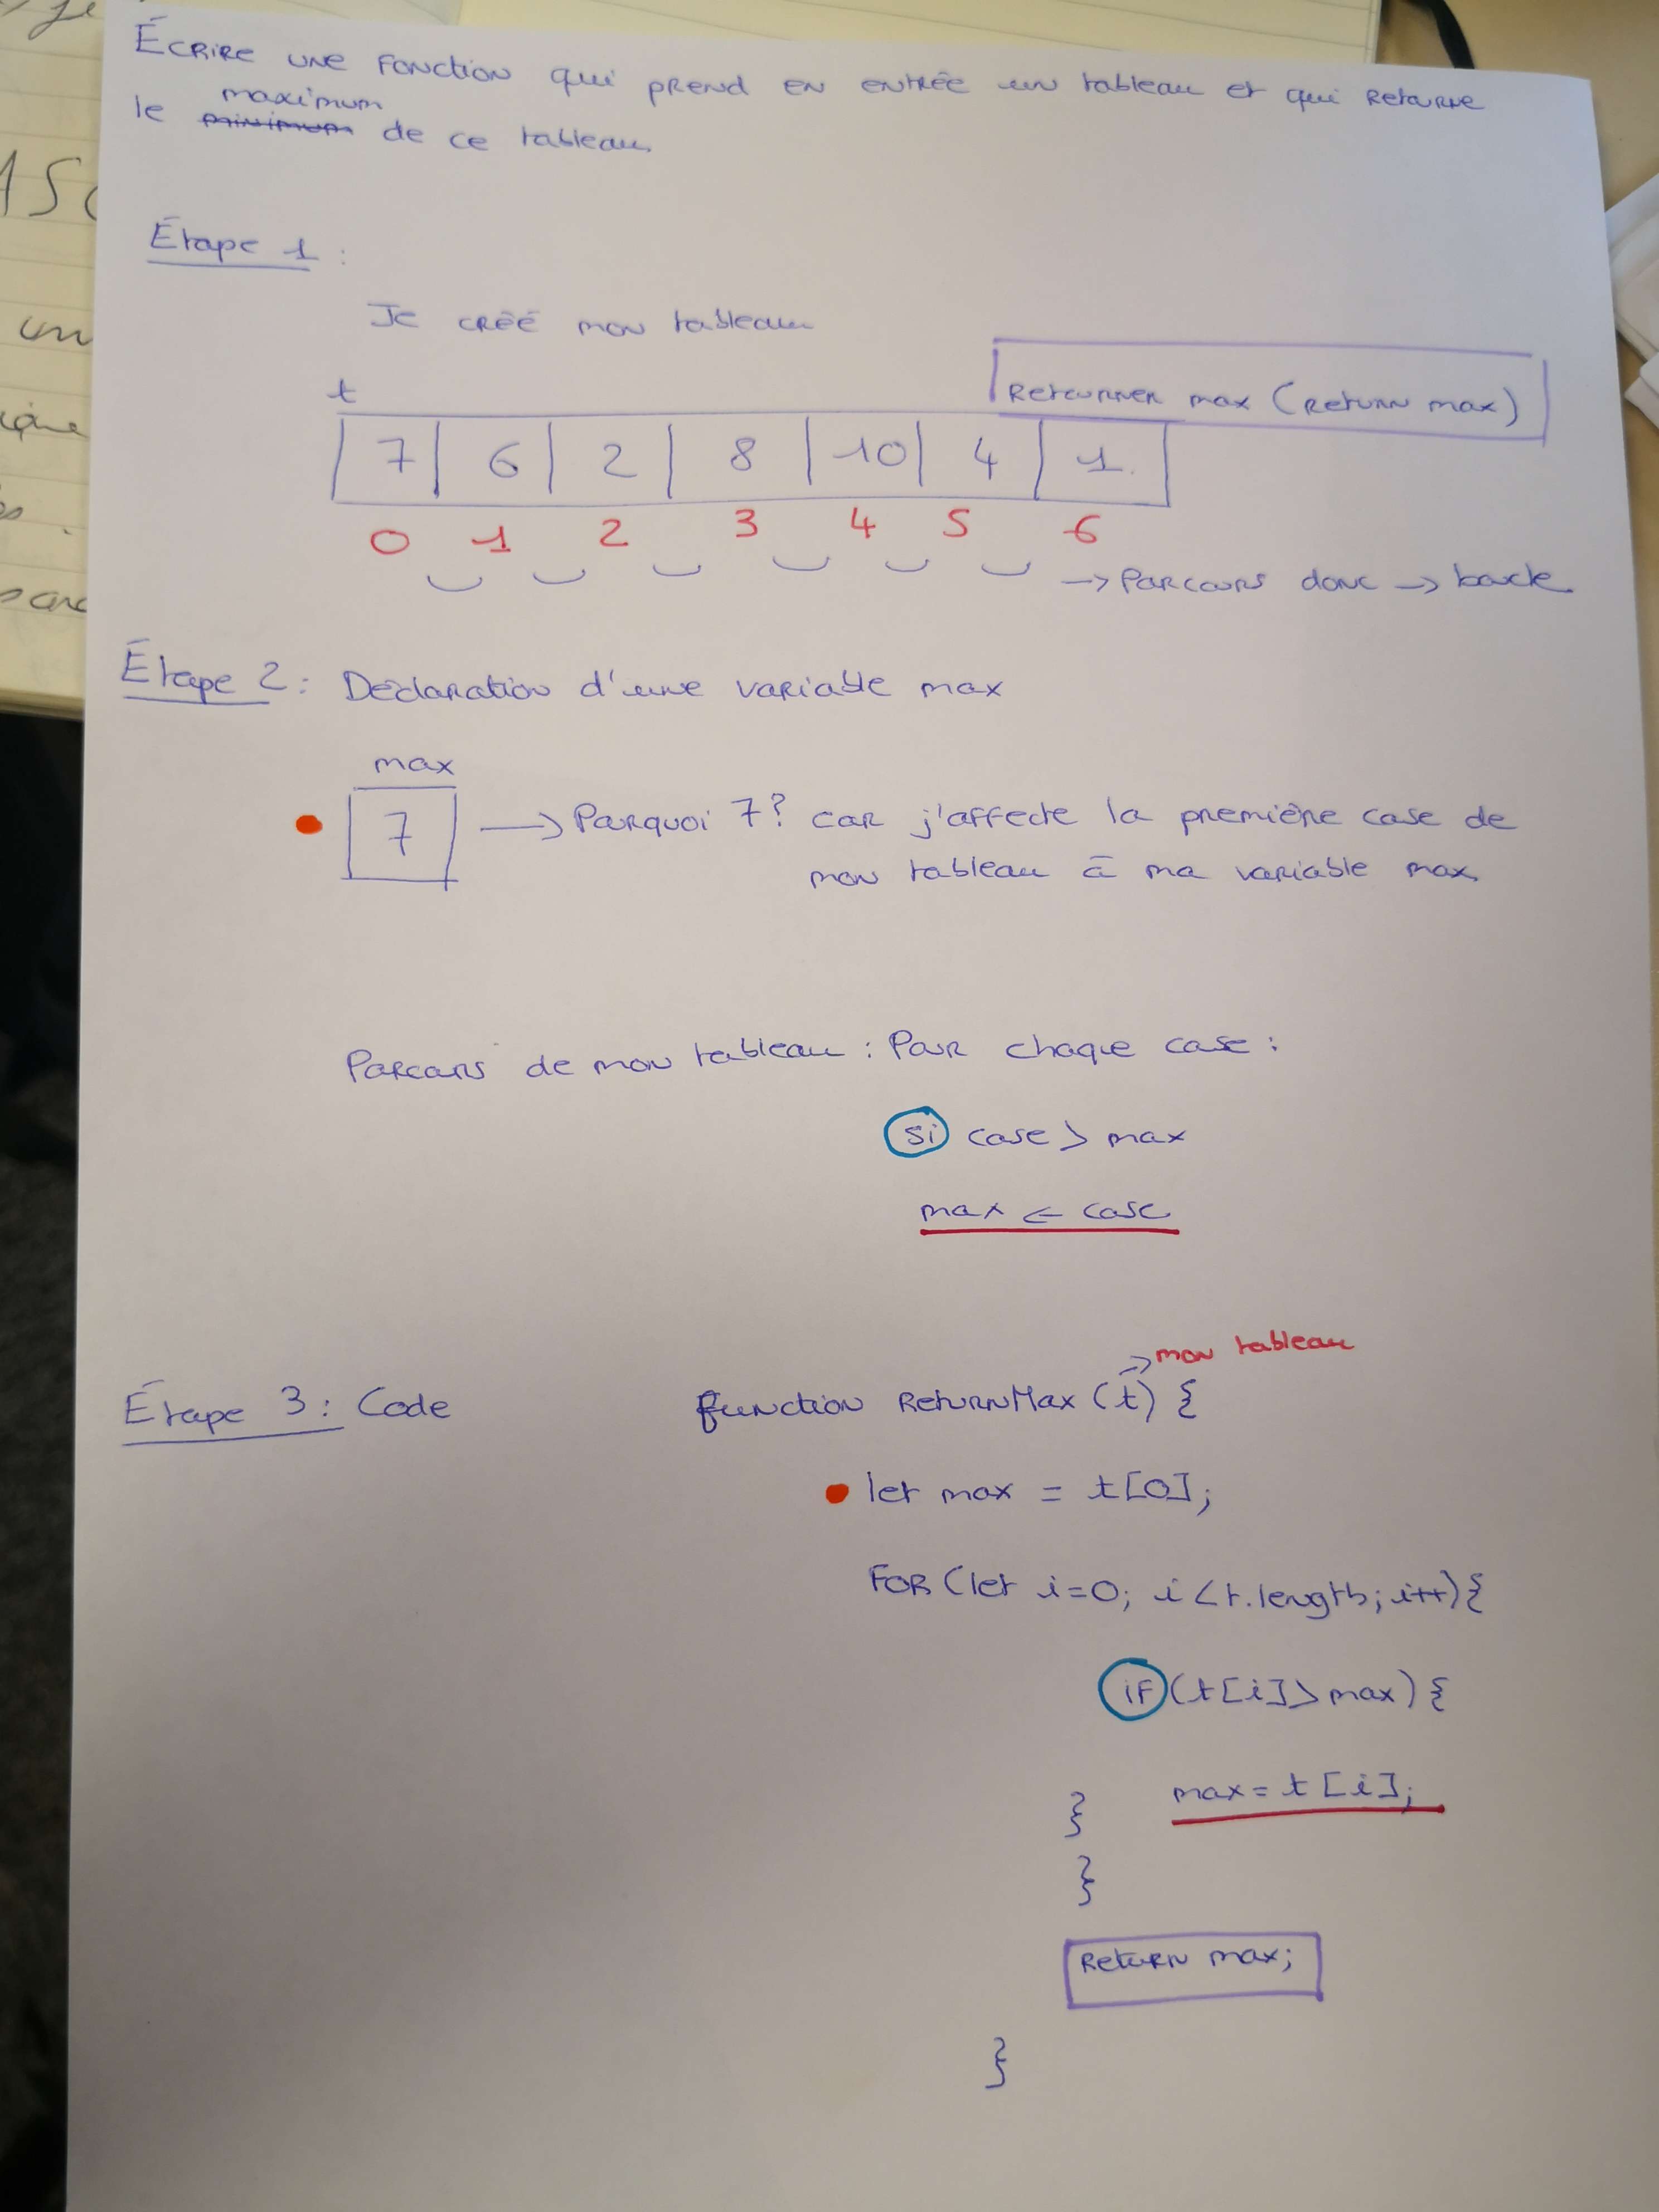 Écrire une fonction qui prend en entrée un tableau et qui retourne
maximum
le minimum de ce tableau
Étape 1 :
Je créé mon tableau
Retourner max (return max)
t
7 6 2 8 10 4 1
0 1 2 3 4 5 6
→ Parcours donc → boucle
Étape 2 : Déclaration d'une variable max
max
7 → Pourquoi 7? car j'affecte la première case de
mon tableau à ma variable max
Parcours de mon tableau : Pour chaque case :
si case > max
max ← case
→ mon tableau
Étape 3 : Code function ReturnMax (t) {
let max = t[0];
for (let i=0; i<t.length; i++){
if (t[i]>max) {
max = t[i];
}
}
Return max;
}
un